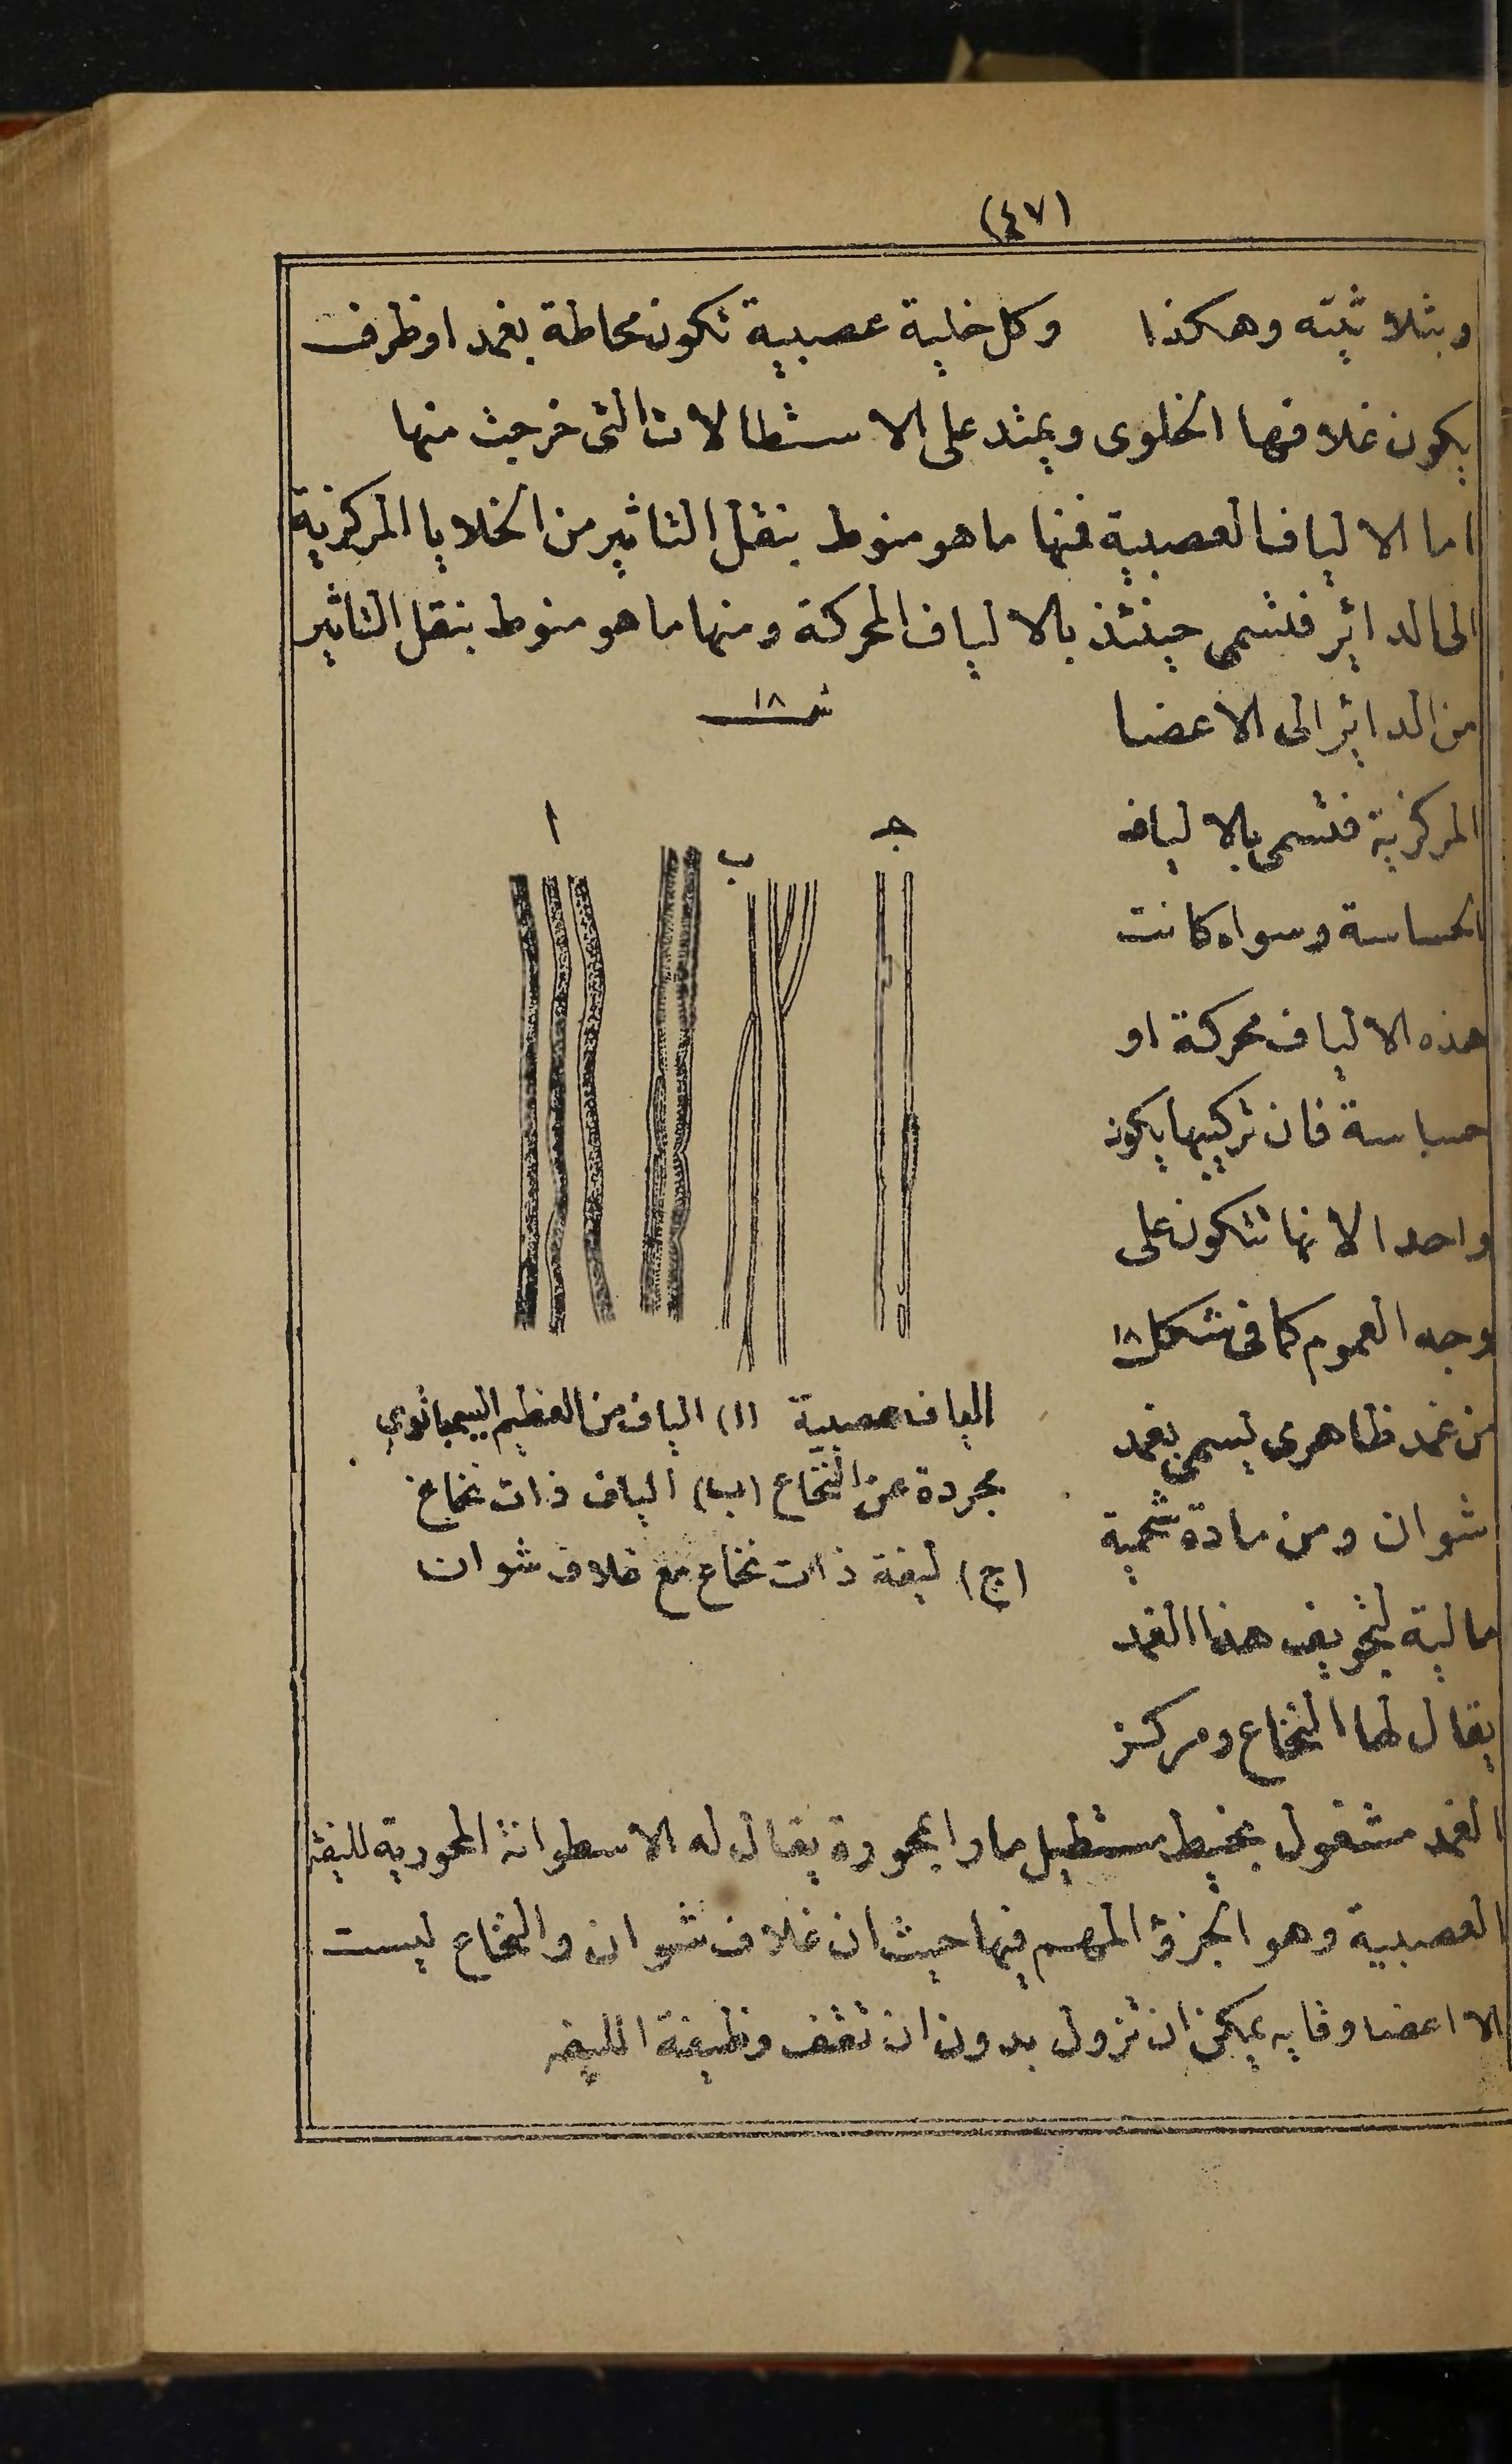 (٤٧)
وبثلاثيته وهكذا وكل خلية عصبية تكون محاطة بغمد او ظرف
يكون غلافها الخلوى ويمتد على الاستطالات التى خرجت منها
اما الالياف العصبية فمنها ما هو منوط بنقل التاثير من الخلايا المركزية
الى الدائر فتسمى حينئذ بالالياف المحركة ومنها ما هو منوط بنقل التاثير
من الدائر الى الاعضا
المركزية فتسمى بالالياف
الحساسة وسواء كانت
هذه الالياف محركة او
حساسة فان تركيبها يكون
واحدا لانها تتكون على
وجه العموم كما فى شكل ١٨
من غمد ظاهرى يسمى بغمد
شوان ومن مادة شحمية
مالية لتجويف هذا الغمد
يقال لها النخاع ومركز
شـ ١٨
ا
ب
جـ
الياف عصبية (ا) الياف من العظيم السيمباتوي
مجردة عن النخاع (ب) الياف ذات نخاع
(ج) ليفة ذات نخاع مع غلاف شوان
الغمد مشغول بخيط مستطيل مارا بمحورة يقال له الاسطوانة المحورية لليفة
العصبية وهو الجزؤ المهم فيها حيث ان غلاف شوان والنخاع ليست
الا اعضا وقايه يمكن ان تزول بدون ان تقف وظيفة الليفه